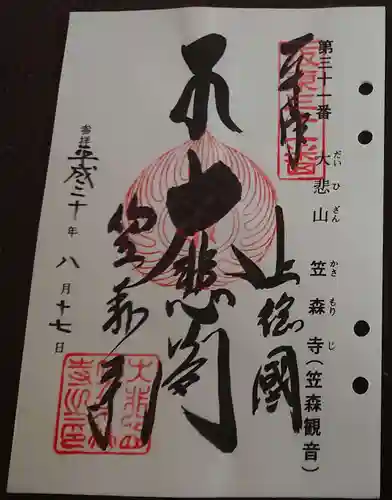 第三十一番 大悲山 笠森寺(笠森観音)
だい ひ ざん かさ もり じ
坂東三十一番
奉拝
上総國
大悲閣
笠森
平成二十年八月十七日